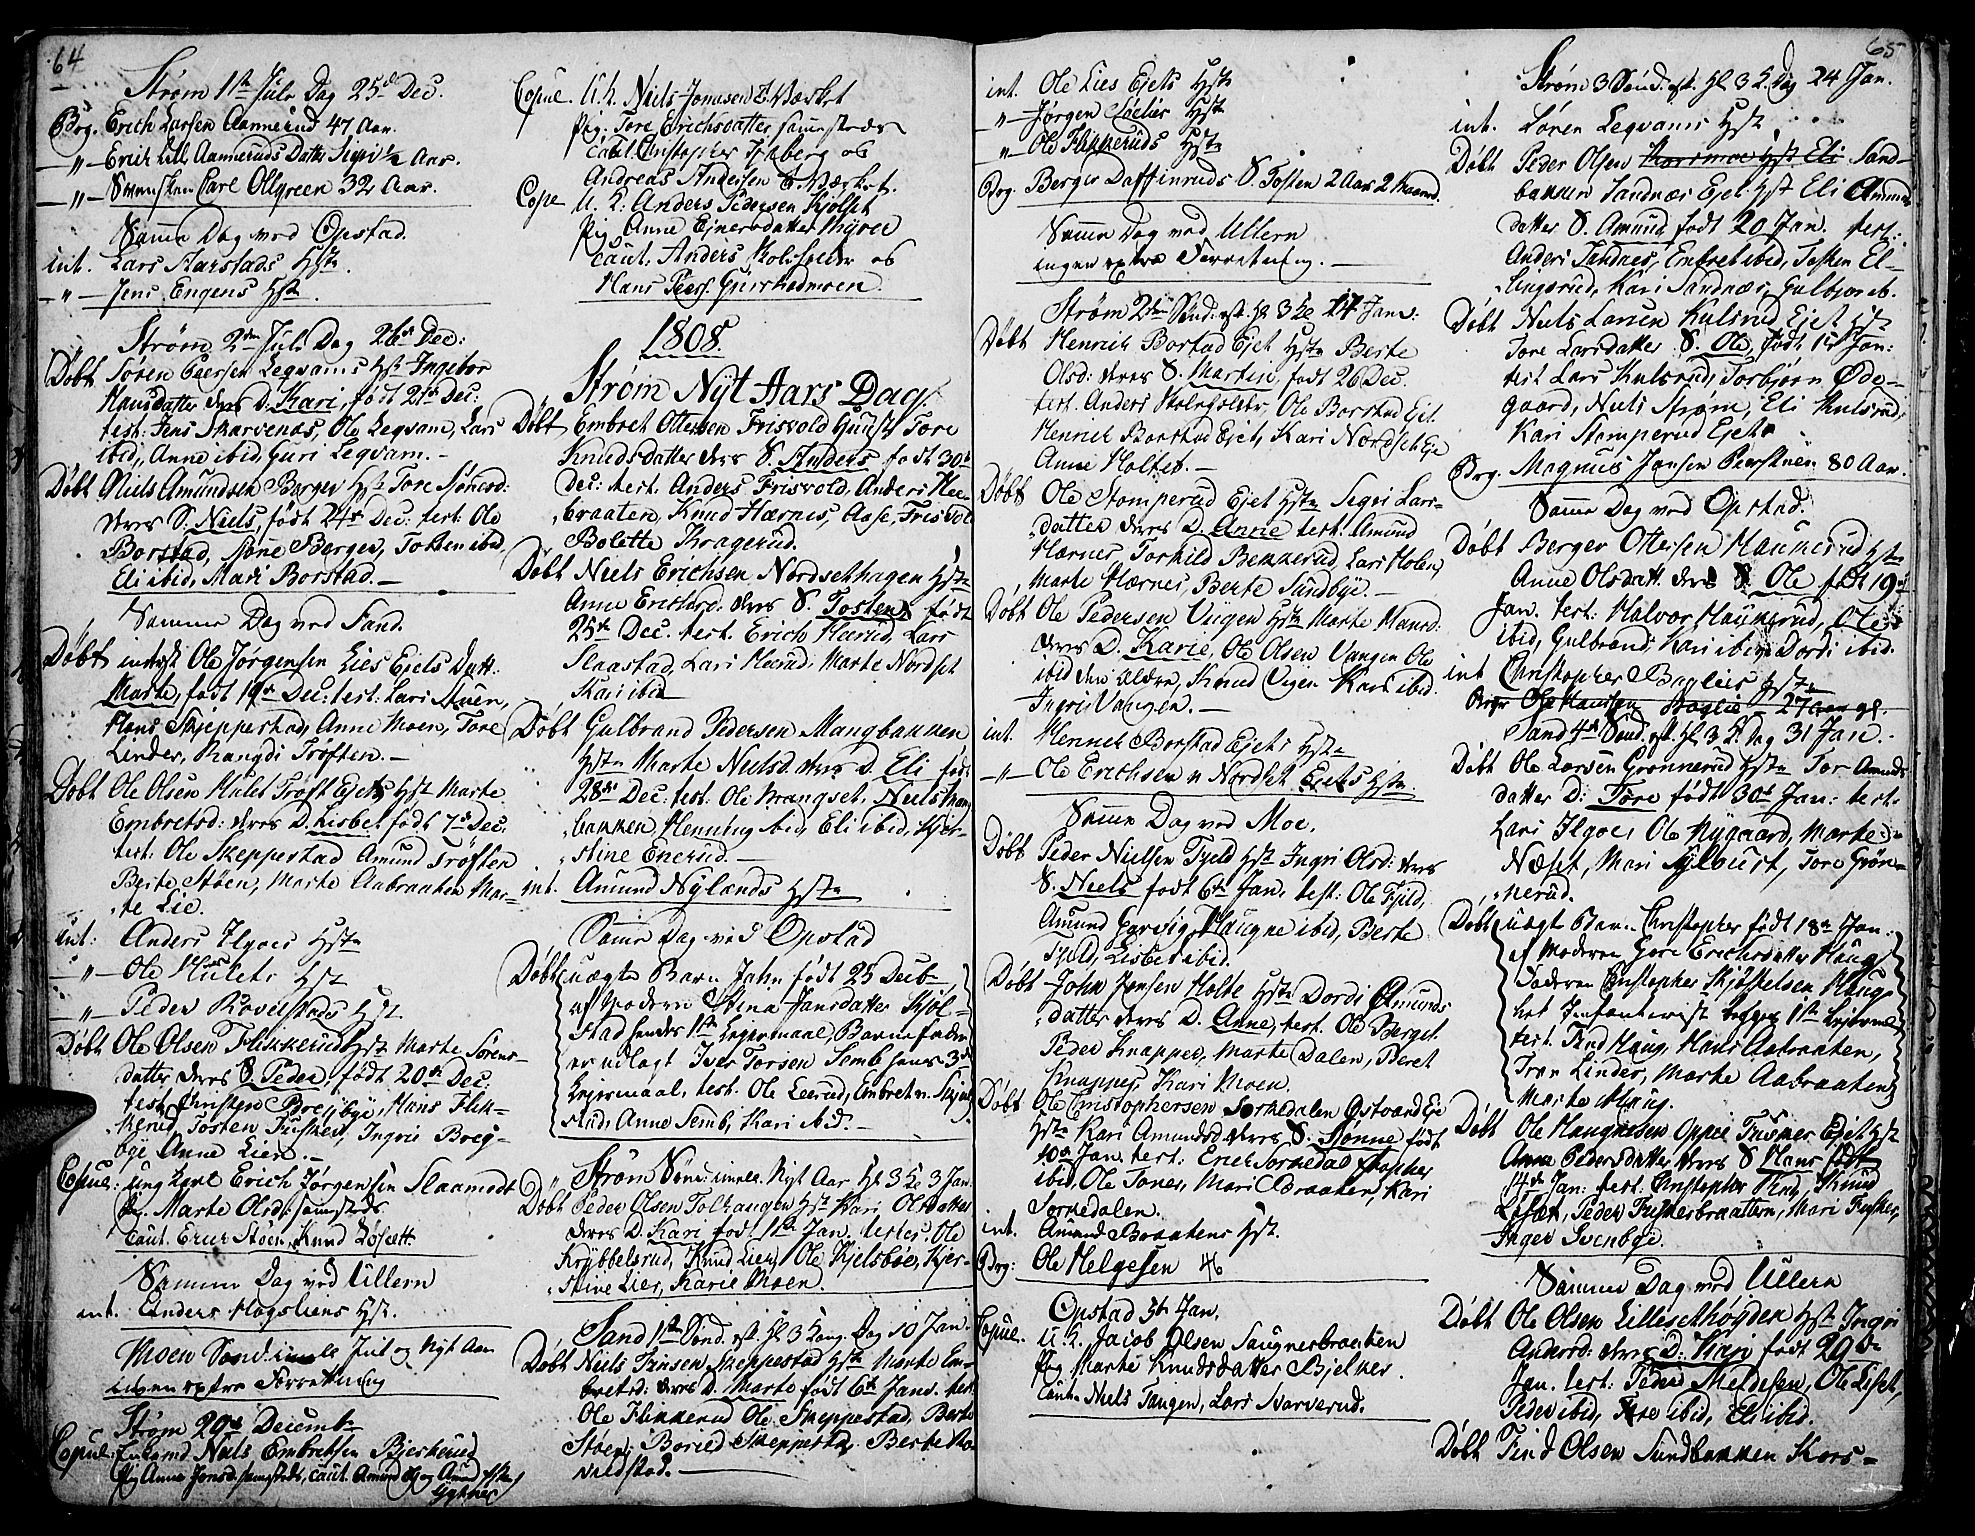 64
Strøm 1ste Jule Dag 25de Dec.
Begr. Erich Larsen Aannerud 47 Aar.
—"— Erich Lill Aanneruds Datter Sigri ½ Aar.
—"— Svensken Carl Ollgreen 32 Aar.
Samme Dag ved Opstad.
int. Lars Aarstads Hst
—"— Jens Engens Hst.
Strøm 2den Jule Dag 26de Dec:
Døbt Søren Peersen Leqvams Hst Ingebor
Hansdatter deres D. Kari, født 21de Dec:
test: Jens Skarvenæs, Ole Leqvam, Lars
ibid, Anne ibid, Guri Leqvam. —
Døbt Niels Amundsen Berger Hst Tore Sønsd:
deres S: Niels, født 24de Dec: test: Ole
Borstad, Berger, Tosten ibid
Eli ibid, Mari Borstad. —
Samme Dag ved Sand.
Døbt Ole Jørgensen Lies Ejets Datt.
Marte, født 19de Dec: test: Lars
Hans Skjeppestad, Anne Moen, Tore
Linder, Rangdi Trøften. —
Døbt Ole Olsen Hulet Trøft Ejets Hst Marte
Embretsd: deres D. Lisbet født 7de Dec.
test: Ole Skeppestad Amund Trøften
Berte Støen, Marte Aabraaten Mar-
te Lie.
int: Anders Ilgoes Hst
—"— Ole Hulets Hst
—"— Peder Hst.
Døbt Ole Olsen Flikkerud Hst Marte Sørens-
datter deres S. Peder, født 20de Dec:
test Christen Breybye, Hans Flik-
kerud, Tosten Fusker, Ingrie Breg-
bye Anne Lien. —
Copul: ung karl Erich Jørgensen Slaamodt
Pig. Marte Olsd: samsteds
caut. Erich Støen, Knud Løsætt.
Samme Dag ved Ullern
int. Anders Hogsliens Hst.
Moen Sønd: imell Juul og Nyt Aar
ingen extra Forretning
Strøm 29de Decembr
Copul: Enkemd Niels Embretsen Bjerkerud
Pig Anne Jonsd. samsteds, caut. Amund og Amund
Copul. U.K. Niels Jonasen E: Værket
Pig. Tore Erichsdatter samsteds
caut. Christopher Fjeberg og
Andreas Andersen E. Værket.
Cope U. K: Anders Pedersen Kjolset
Pig Anne Ejnersdatter Myrer
caut. Anders Holshoder og
Hans Peers. Guusholmoen.
1808.
Strøm Nyt Aars Dag.
Døbt Embret Ottersen Frisvold Hst Tore
Knudsdatter deres S. Anders født 30te
Dec: test. Anders Frisvold, Anders Hee-
braaten, Knud Hærnes, Aase Frisvold
Bolette Kragerud.
Døbt Niels Erichsen Nordsethagen Hst
Anne Erichsd: deres S. Tosten født
25de Dec. test. Erich Harud, Lars
Slaastad, Lari Harud, Marte Nordset
Kari ibid
Døbt Gulbrand Pedersen Mangbakken
Hst Marte Nielsd. deres D. Eli født
28de Dec: test: Ole Brangset, Niels Mang
bakken, Henning ibid, Eli ibid, Kjer-
stine Enerud. —
int. Amund Nylands Hst
Samme Dag ved Opstad
Døbt uægte Barn Jahn født 25 Decb
af Moderen Stina Jansdatter Kjøl-
stad hendes 1ste Lejermaal, Barnefader
er udlagt Iver Torsen Semb hans 3de
Lejermaal, test. Ole Leerud, Embret n. Skjøl
stad, Anne Semb, Kari ibid.
Strøm Sønd: imell. Nyt Aar H 3 K 3 Jan.
Døbt Peder Olsen Tolhaugen Hst Kari Olsdatter
deres D. Kari født 1ste Jan. testes: Ole
Krybbelsrud, Knud Lier, Ole Kjelsbøe, Kjer-
stine Lier, Karie Moen.
Sand 1ste Sønd. eft. H 3 Kong. Dag 10 Jan.
Døbt Niels Finsen Skeppestad Hst Marte Em-
bretsd: deres D. Marte født 6te Jan. test
Ole Flikkerud Ole Skeppestad, Berte
Støen, Boried Skeppestad Berte Ra-
valdstad. —
int. Ole Lies Ejets Hst
—"— Jørgen Hst
" Ole Flikkeruds Hst
Begr. Berger Daffinruds S. Tosten 2 Aar 2 Maaned.
Samme Dag ved Ullern
ingen extra Forretning. —
Strøm 2den Sønd: eft. H 3 K 17 Jan:
Døbt Henrich Borstad Ejet Hst Berte
Olsd: deres S. Marten, født 26 Dec.
test. Anders Holshoder, Ole Borstad Eiet
Henrich Borstad Ejet, Kari Nordset Eje
Anne Holtet. —
Døbt Ole Stomperud Ejet Hst Segri Lars-
datter deres D. Anne test. Amund
Hærnes, Torkild Bekkerud, Lars Holen,
Marte Hærnes, Berte Sandbye. —
Døbt Ole Pedersen Viigen Hst Marte Hansd:
deres D. Karie, Ole Olsen Vangen Ole
ibid den Ældre, Knud Vigen Kari ibid.
Ingri Vangen. —
int. Henrich Borstad Ejets Hst
—"— Ole Erichsen n Nordset Ejets Hst.
Samme Dag ved Moe.
Døbt Peder Nielsen Fjeld Hst Ingri Olsd: deres
S. Niels født 6te Jan. test: Ole Fjeld,
Amund Garvig, Haagne ibid, Berte
Fjeld, Lisbet ibid.
Døbt John Jensen Holte Hst Dordi Amunds
datter deres D. Anne, test. Ole Berget
Peder Knapper, Marte Dalen, Beret
Knapper, Kari Moen.
Døbt Ole Christophersen Sørkedalen Ostvand Eje
Hst Kari Amundsd deres S. Sønne født
10de Jan. test: Erich Sørkedal
ibid, Ole Toner, Mari Braaten, Kari
Sørkedalen.
int. Amund Braatens Hst.
Begr: Ole Helgesen 46
Opstad 5te Jan.
Copul. U.K. Jacob Olsen Saugnersbraatten
Pig Marte Knudsdatter Bjelker.
caut. Niels Tangen, Lars Narverud.
65
Strøm 3 Sønd. eft. H 3 K. Dag 24 Jan.
int. Søren Leqvams Hst
Døbt Peder Olsen Sand-
bakken Sandnæs Ejet Hst Eli Amunds
datter S. Amund født 20 Jan. test:
Anders Sandnes, Embret ibid, Tosten El-
lingsrud, Kari Sandnæs, Gulbjor ib.
Døbt Niels Larsen Kulsrud Ejet Hst
Tore Larsdatter S. Ole, født 15 Jan:
test Lars Kulsrud, Torbjørn Øde-
gaard, Niels Strøm, Eli Kulsrud,
Kari Stomperud Ejet
Begr. Magnus Jansen 80 Aar.
Samme Dag ved Opstad.
Døbt Berger Ottersen Haukerud Hst
Anne Olsdatt. deres S. Ole født 19de
Jan. test: Halvor Haukerud, Ole
ibid, Gulbrand, Kari ibid, Dordi ibid.
int Christopher Baglies Hst
Begr Ole Hansen Baglie 27 Aar gl.
Sand 4de Sønd. eft. H 3 K Dag 31 Jan. —
Døbt Ole Larsen Grønnerud Hst Tor Amunds
datter D: Tore født 30te Jan: test.
Lars Ilgoe, Ole Nygaard, Marte
Næset, Mari Sylburt, Tore Grøn-
nerud.
Døbt uægt Barn. Christopher født 18de Jan:
af Moderen Gore Erichsdatter Haug
Faderen Christopher Skjøskelsen Haug
het Infanterist begges 1ste Lejermaal
test. Find Haug, Hans Aabraaten,
Iver Linder, Marte Aabraaten
Marte Haug.
Døbt Ole Haagnesen Oppie Fusker Ejet Hst
Anne Pedersdatter deres S Hans født
14de Jan: test: Christopher Find, Knud
Løsæt, Peder Fuskerbraatten, Mari Fusker,
Inger Svenbye.
Samme Dag ved Ullern
Døbt Ole Olsen Lilleselhøgden Hst Ingri
Andersd: deres D: Kari født 29de
Jan. test: Peder Meldesen, Ole Liset,
Peder ibid, Tore ibid, Eli ibid.
Døbt Find Olsen Sundbakken Kors-